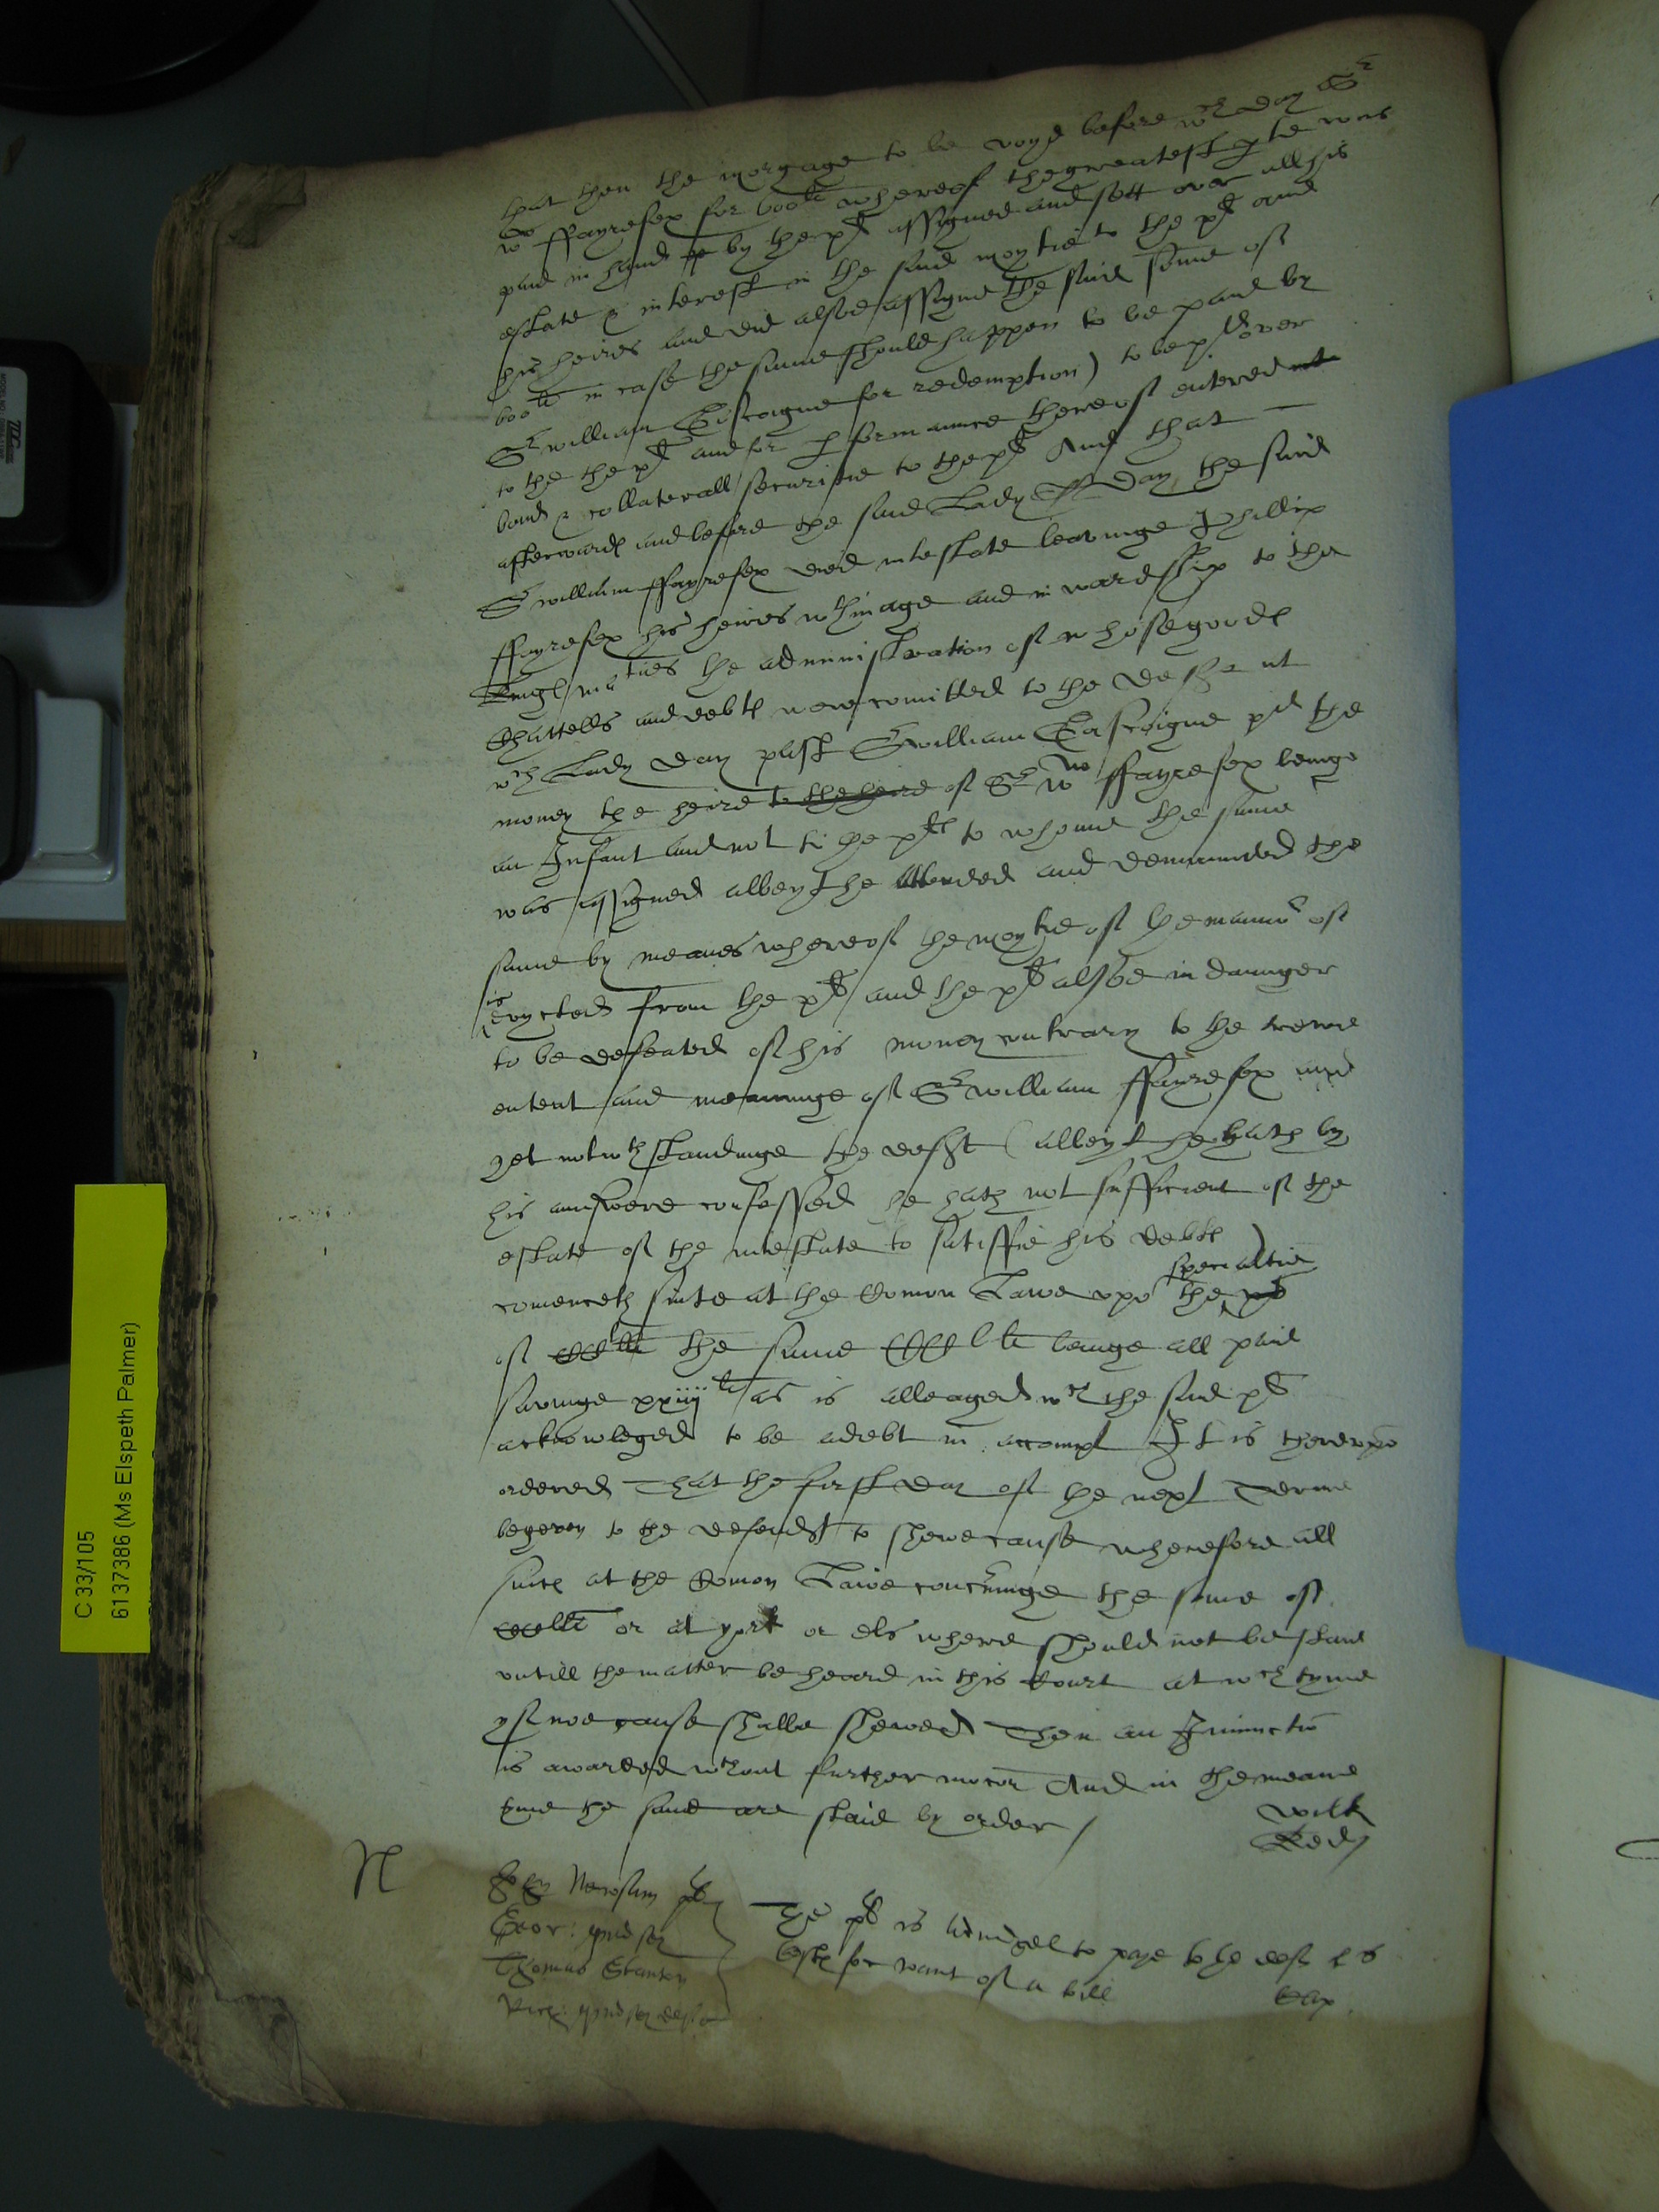 that then the morgage to be voyd before wch day Sr
Wm ffayrefex for 600li whereof the greatest pte was
paid in hand by the plt assigned and sett over all his
estate & interest in the said moytie to the plt and
his heires and did alsoe assigne the said some of
600li in case the same should happen to be paid by
Sr william Gascoigne for redemption) to be pd over
to the the plt and for pformance thereof entered
bond & collaterall securitie to the plt And that
afterwards and before the said Lady Day the said
Sr william ffayrefex died intestate leavinge Phillip
ffayrefex his heires wthin age and in wardship to the
Kings maties the administration of whose goods
Chattells and debts were comitted to the deft at
wch Lady day past Sr william Gascoigne pd the
money the heire to the heire of Sr Wm ffayrefex beinge
an Infant and not to the plt to whome the same
was assigned albeyt he attended and demaunded the
same by meanes whereof the moytie of the mannor of
is evycted from the plt and the plt alsoe in daunger
to be defeated of his money contrary to the trewe
entent and meaninge of Sr william ffayrefex and
yet notwthstandinge the deft (albeyt he hath by
his answere confessed he hath not sufficient of the
estate of the intestate to satisfie his debts)
comenceth suite at the Comon Lawe upo the specialtie
of CCli the same CCli beinge all paid
savinge xxiiijli as is alleaged wch the said plt
acknowleged to be a debt in accompt It is thereupo
ordered That the first day of the next Terme
be geven to the defendt to shewe cause wherefore all
suits at the Comon Lawe concerninge the some of
CCli or at york or els where should not be staied
untill the matter be heard in this Court at wch tyme
yf noe cause shalbe shewed Then an Iniunctio
is awarded wthout further mocon And in the meane
tyme the same are staid by order /
Wilk
Red
John Newsam plt
Geor: lindsey
Thomas Stanton
Rich: lindsey defts
The plt is adiudged to paye to the deft
costs for want of a bill
C 33/105
6137386 (Ms Elspeth Palmer)